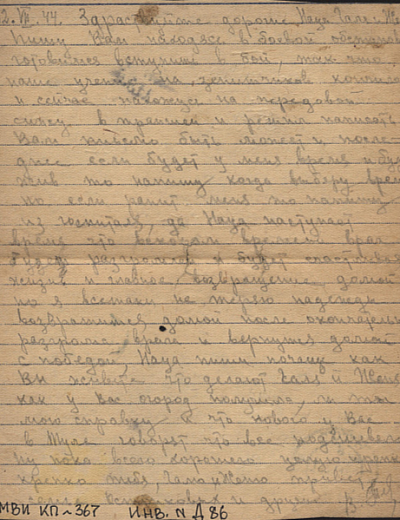 2.VII.44. Здравствуйте дорогие Надя Галя и Же
Пишу Вам находясь в боевой обстановк
готовимся вступить в бой, так что
наше учение на кончило
и сейчас нахожусь на передовой
сижу в траншеи и решил написать
Вам письмо быть может и после
днее если будет у меня время и буд
жив то напишу когда выберу врем
но если ранит меня то напишу
из госпиталя, да Надя наступает
время что вскором времени враг
будет разгромлен и будет счастливая
жизнь и главное, возвращение домой
но я всетаки не теряю надежды
возвратится домой после окончательн
разгрома врага и вернутся домой
с победой, Надя пиши почаще как
Вы живете что делают Галя и Женя
как у Вас огород получила ли ты
мою справку и что нового у Вас
в Туле говорят что вас
ну пока всего хорошего целую крепко
крепко тебя, Галю и Женю привет
и других
МВИ КП-367 ИНВ. N Д 86